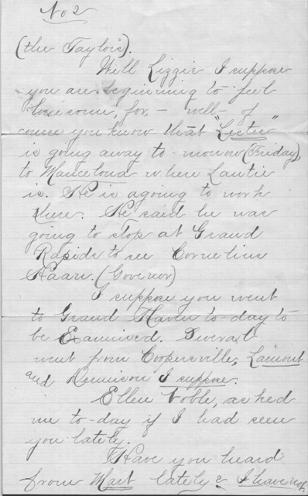 No 2
(the Taylors).
Well Lizzie I suppose
you are beginning to feel
lonesome, for, - well - of
course you know that "Lutie"
is going away to-morrow (Friday)
to Mancelona where Lautie
is. He is agoing to work
there. He said he was
going to stop at Grand
Rapids to see Cornelius
Haan. (Governor)
I suppose you went
to Grand Haven to-day to
be Examined. Several
went from Coopersville, Lamont
and Dennison I suppose.
Ellen Noble, asked
me to-day if I had seen
you lately.
Have you heard
from Mart lately? I have not